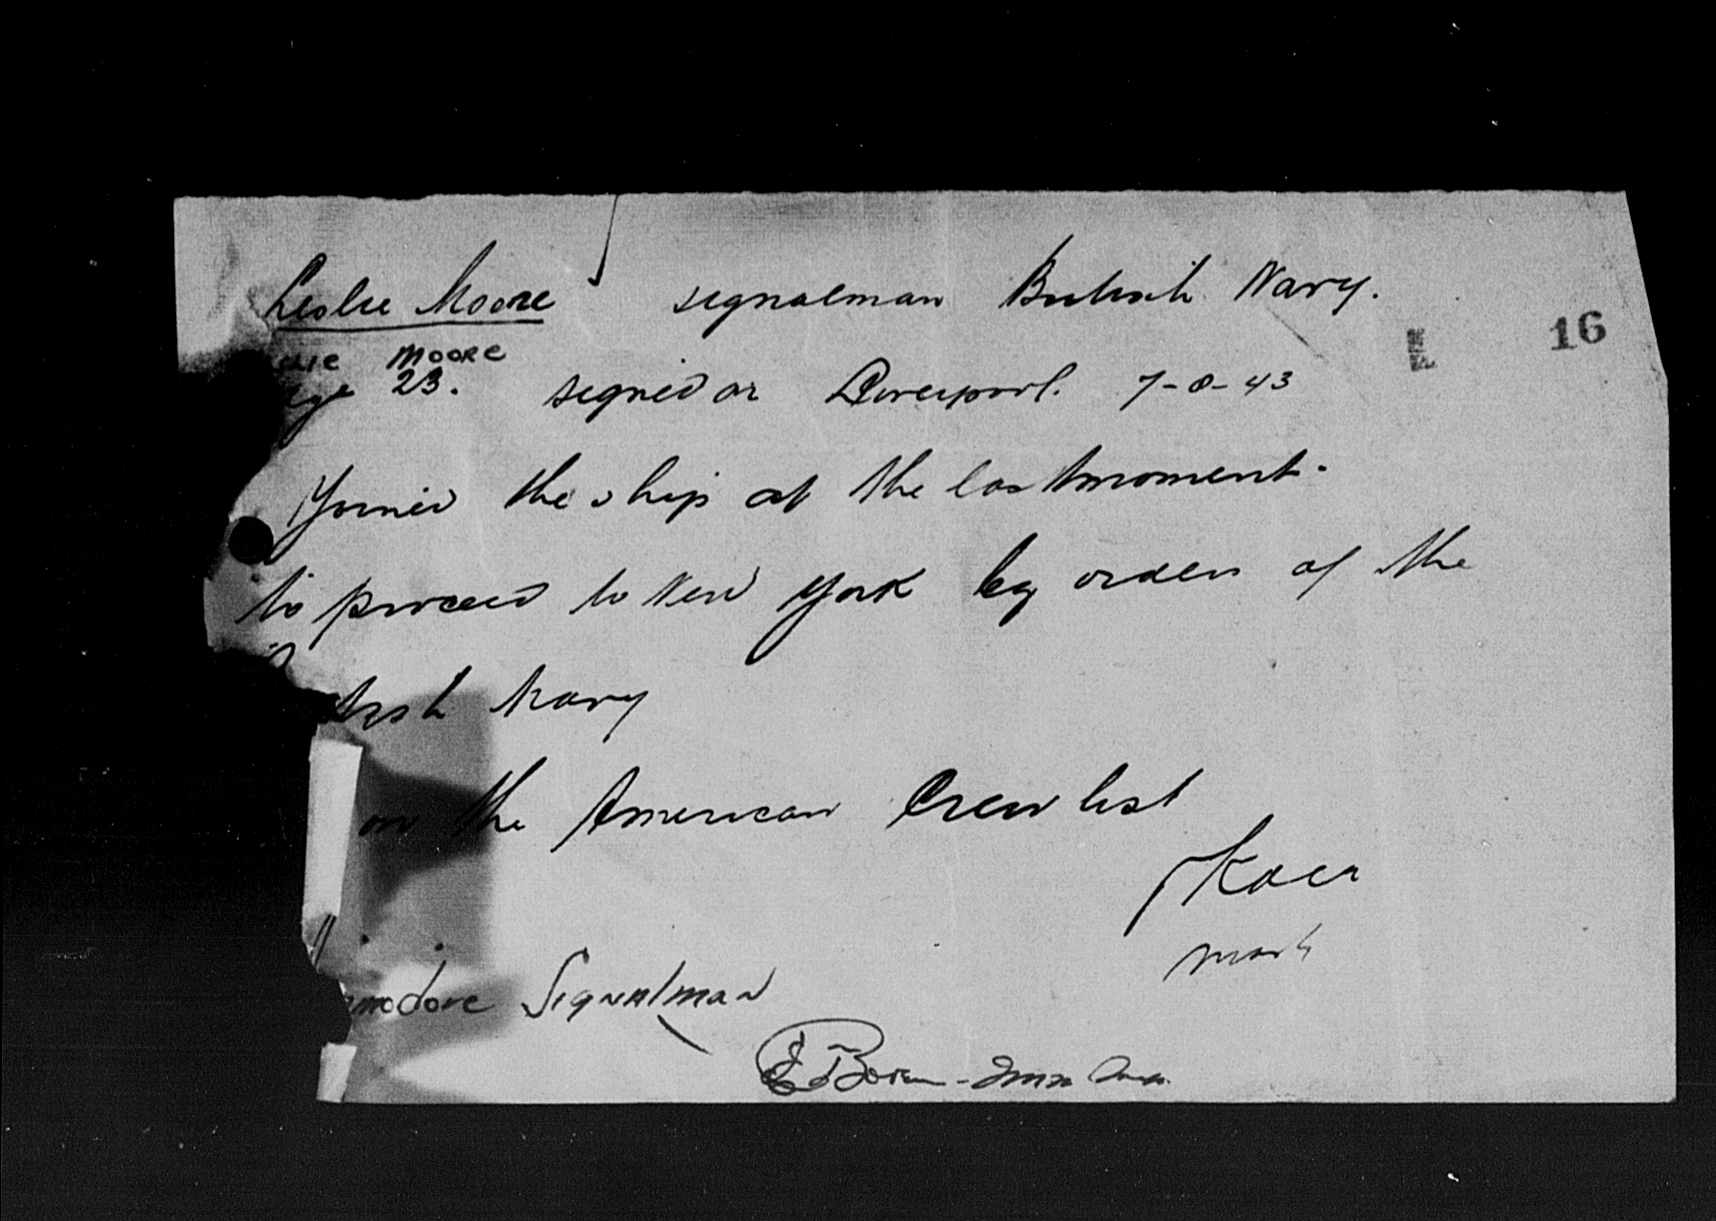 Leslie Moore signalman British Navy.
16
lie MOORE
Age 23. signed on Liverpool. 7-8-43
Joined the ship at the last moment.
to proceed to New York by orders of the
British Navy
on the American Crew list
Commodore Signalman